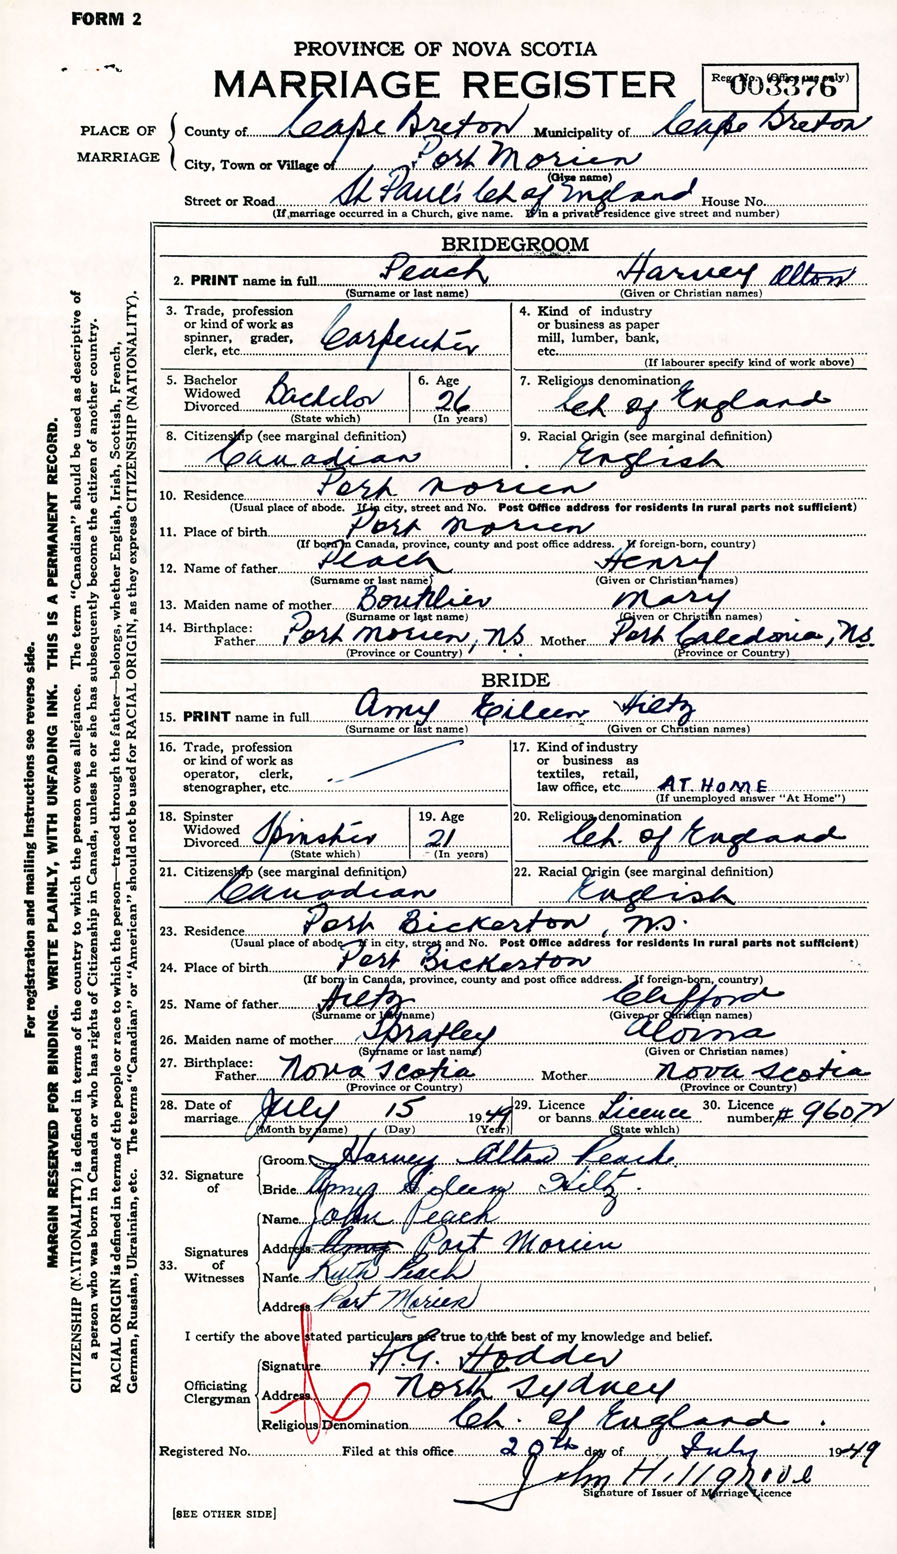 FORM 2
PROVINCE OF NOVA SCOTIA
MARRIAGE REGISTER
Reg. No. (Office use only)
003376
PLACE OF MARRIAGE
County of Cape Breton Municipality of Cape Breton
City, Town or Village of Port Morien
(Give name)
Street or Road St Paul's Ch of England House No.
(If marriage occurred in a Church, give name. If in a private residence give street and number)
BRIDEGROOM
2. PRINT name in full Peach Harvey Alton
(Surname or last name) (Given or Christian names)
3. Trade, profession or kind of work as spinner, grader, clerk, etc. Carpenter
4. Kind of industry or business as paper mill, lumber, bank, etc.
(If labourer specify kind of work above)
5. Bachelor Widowed Divorced Bachelor
(State which)
6. Age 26
(In years)
7. Religious denomination Ch of England
8. Citizenship (see marginal definition) Canadian
9. Racial Origin (see marginal definition) English
10. Residence Port Morien
(Usual place of abode. If in city, street and No. Post Office address for residents in rural parts not sufficient)
11. Place of birth Port Morien
(If born in Canada, province, county and post office address. If foreign-born, country)
12. Name of father Peach Henry
(Surname or last name) (Given or Christian names)
13. Maiden name of mother Boutilier Mary
(Surname or last name) (Given or Christian names)
14. Birthplace: Father Port Morien, N.S. Mother Port Caledonia, N.S.
(Province or Country) (Province or Country)
BRIDE
15. PRINT name in full Amy Eileen Hiltz
(Surname or last name) (Given or Christian names)
16. Trade, profession or kind of work as operator, clerk, stenographer, etc.
17. Kind of industry or business as textiles, retail, law office, etc. AT HOME
(If unemployed answer "At Home")
18. Spinster Widowed Divorced Spinster
(State which)
19. Age 21
(In years)
20. Religious denomination Ch. of England
21. Citizenship (see marginal definition) Canadian
22. Racial Origin (see marginal definition) English
23. Residence Port Bickerton, N.S.
(Usual place of abode. If in city, street and No. Post Office address for residents in rural parts not sufficient)
24. Place of birth Port Bickerton
(If born in Canada, province, county and post office address. If foreign-born, country)
25. Name of father Hiltz Clifford
(Surname or last name) (Given or Christian names)
26. Maiden name of mother Spratley
(Surname or last name) (Given or Christian names)
27. Birthplace: Father Nova Scotia Mother Nova Scotia
(Province or Country) (Province or Country)
28. Date of marriage July 15 1949
(Month by name) (Day) (Year)
29. Licence or banns Licence
(State which)
30. Licence number
32. Signature of
Groom Harvey Alton Peach
Bride Amy Eileen Hiltz
33. Signatures of Witnesses
Name John Peach
Address Amy Port Morien
Name Ruth Peach
Address Port Morien
I certify the above stated particulars are true to the best of my knowledge and belief.
Officiating Clergyman
Signature H.G. Hodder
Address North Sydney
Religious Denomination Ch. of England
Registered No. Filed at this office 20th day of July 1949
John Hillgrove
Signature of Issuer of Marriage Licence
[SEE OTHER SIDE]
For registration and mailing instructions see reverse side.
MARGIN RESERVED FOR BINDING. WRITE PLAINLY, WITH UNFADING INK. THIS IS A PERMANENT RECORD.
CITIZENSHIP (NATIONALITY) is defined in terms of the country to which the person owes allegiance. The term "Canadian" should be used as descriptive of
a person who was born in Canada or who has rights of Citizenship in Canada, unless he or she has subsequently become the citizen of another country.
RACIAL ORIGIN is defined in terms of the people or race to which the person—traced through the father—belongs, whether English, Irish, Scottish, French,
German, Russian, Ukrainian, etc. The terms "Canadian" or "American" should not be used for RACIAL ORIGIN, as they express CITIZENSHIP (NATIONALITY).